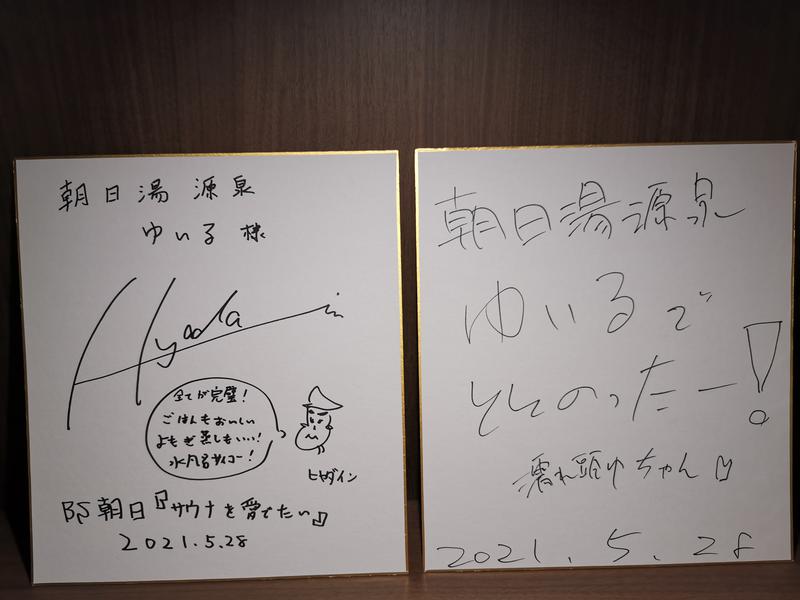 朝日湯源泉
ゆいる様
Hyada in
全てが完璧！
ごはんもおいしい
よもぎ蒸しもいい！
水風呂サイコー！
ヒャダイン
BS朝日『サウナを愛でたい』
2021.5.28
朝日湯源泉
ゆいるで
ととのったー！
濡れ頭巾ちゃん
2021.5.28